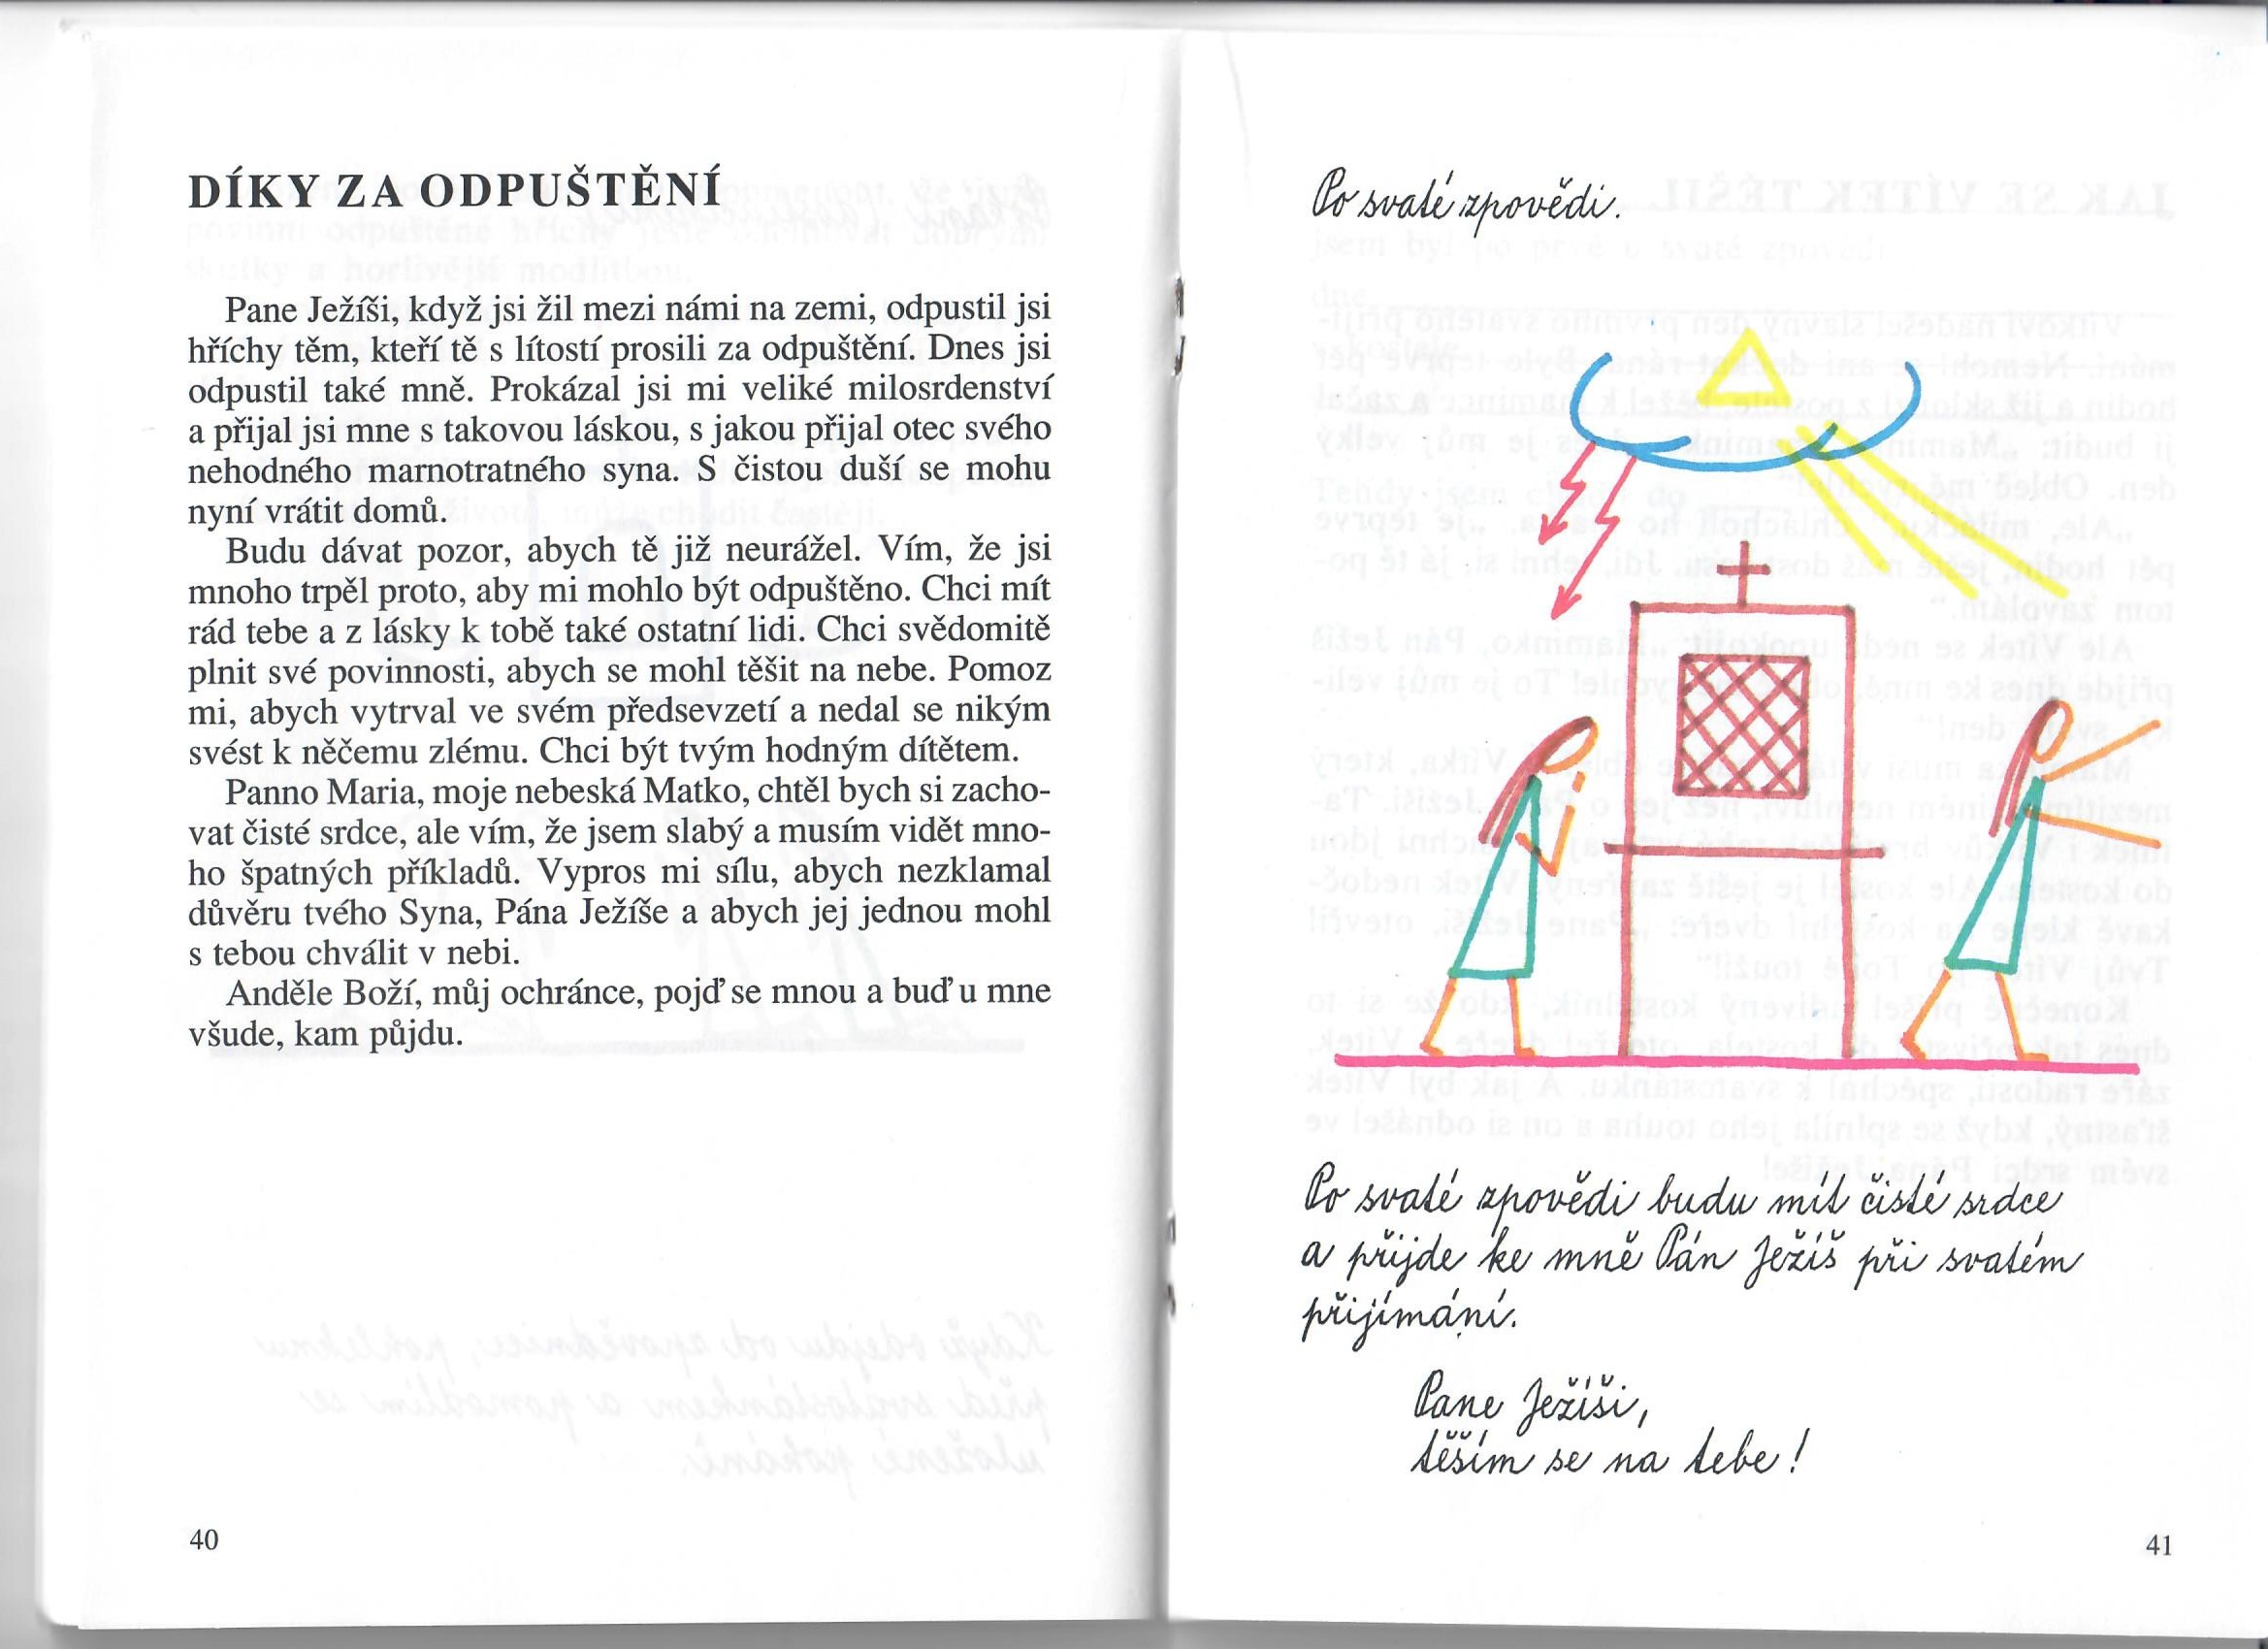 DÍKY ZA ODPUŠTĚNÍ
Pane Ježíši, když jsi žil mezi námi na zemi, odpustil jsi
hříchy těm, kteří tě s lítostí prosili za odpuštění. Dnes jsi
odpustil také mně. Prokázal jsi mi veliké milosrdenství
a přijal jsi mne s takovou láskou, s jakou přijal otec svého
nehodného marnotratného syna. S čistou duší se mohu
nyní vrátit domů.
Budu dávat pozor, abych tě již neurážel. Vím, že jsi
mnoho trpěl proto, aby mi mohlo být odpuštěno. Chci mít
rád tebe a z lásky k tobě také ostatní lidi. Chci svědomitě
plnit své povinnosti, abych se mohl těšit na nebe. Pomoz
mi, abych vytrval ve svém předsevzetí a nedal se nikým
svést k něčemu zlému. Chci být tvým hodným dítětem.
Panno Maria, moje nebeská Matko, chtěl bych si zacho-
vat čisté srdce, ale vím, že jsem slabý a musím vidět mno-
ho špatných příkladů. Vypros mi sílu, abych nezklamal
důvěru tvého Syna, Pána Ježíše a abych jej jednou mohl
s tebou chválit v nebi.
Anděle Boží, můj ochránce, pojď se mnou a buď u mne
všude, kam půjdu.
40
Po svaté zpovědi.
Po svaté zpovědi budu mít čisté srdce
a přijde ke mně Pán Ježíš při svatém
přijímání.
Pane Ježíši,
těším se na tebe!
41